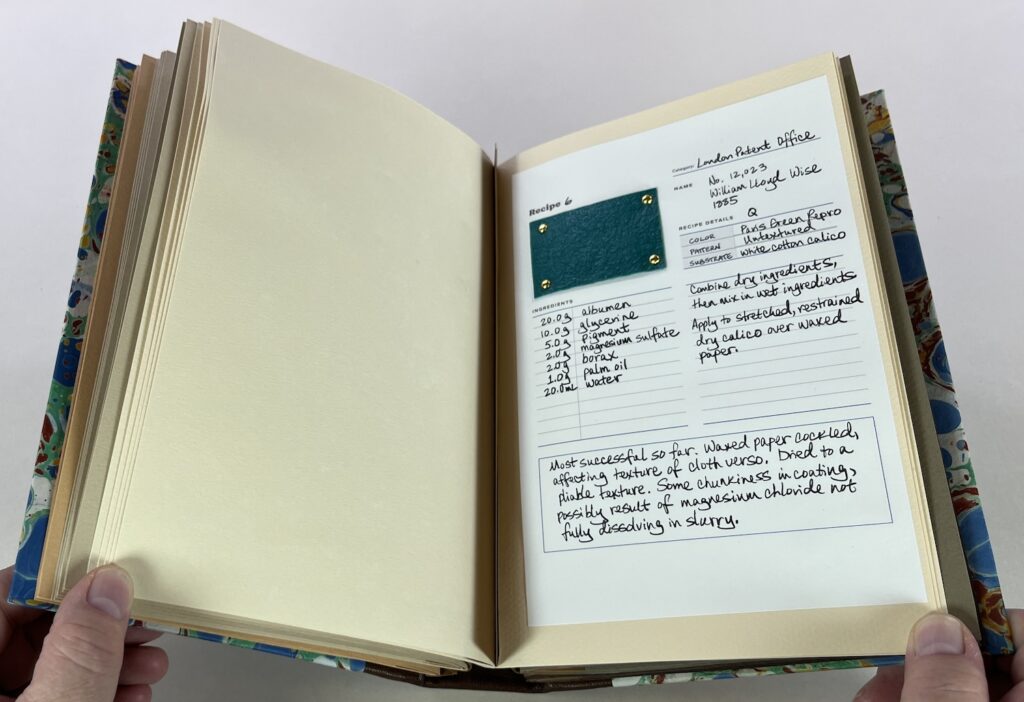 Recipe 6
Category: London Patent Office
NAME No. 12,023
William Lloyd Wise
1885
RECIPE DETAILS Q
COLOR Paris Green Repro
PATTERN Untextured
SUBSTRATE white cotton calico
INGREDIENTS
20.0g albumen
10.0g glycerine
5.0g pigment
2.0g magnesium sulfate
2.0g borax
1.0g palm oil
20.0mL water
Combine dry ingredients,
then mix in wet ingredients
Apply to stretched, restrained
dry calico over waxed
paper.
Most successful so far. Waxed paper cockled,
affecting texture of cloth verso. Dried to a
pliable texture. Some chunkiness in coating,
possibly result of magnesium chloride not
fully dissolving in slurry.